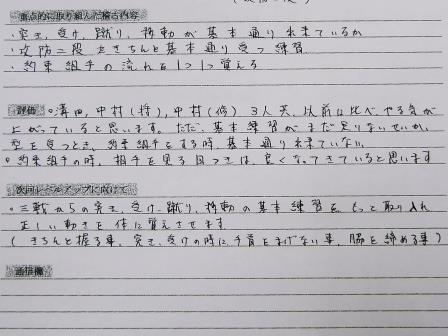 重点的に取り組んだ稽古内容
・突き、受け、蹴り、移動が基本通り出来ているか
・攻防二段をきちんと基本通り受つ練習
・約束組手の流れを1つ1つ覚える
評価 。溝田、中村(将)、中村(修) 3人共、以前に比べやる気が
上がっていると思います。ただ、基本練習がまだ足りないせいか、
型を受つとき、約束組手をする時、基本通り出来ていない。
。約束組手の時、相手を見る目つきは、良くなってきていると思います
次回レベルアップに向けて
。三戦からの突き、受け、蹴り、移動の基本練習をもっと取り入れ
正しい動きを体に覚えさせます
(きちんと握る事、突き、受けの時に手首をまげない事、脇を締める事)
通信欄